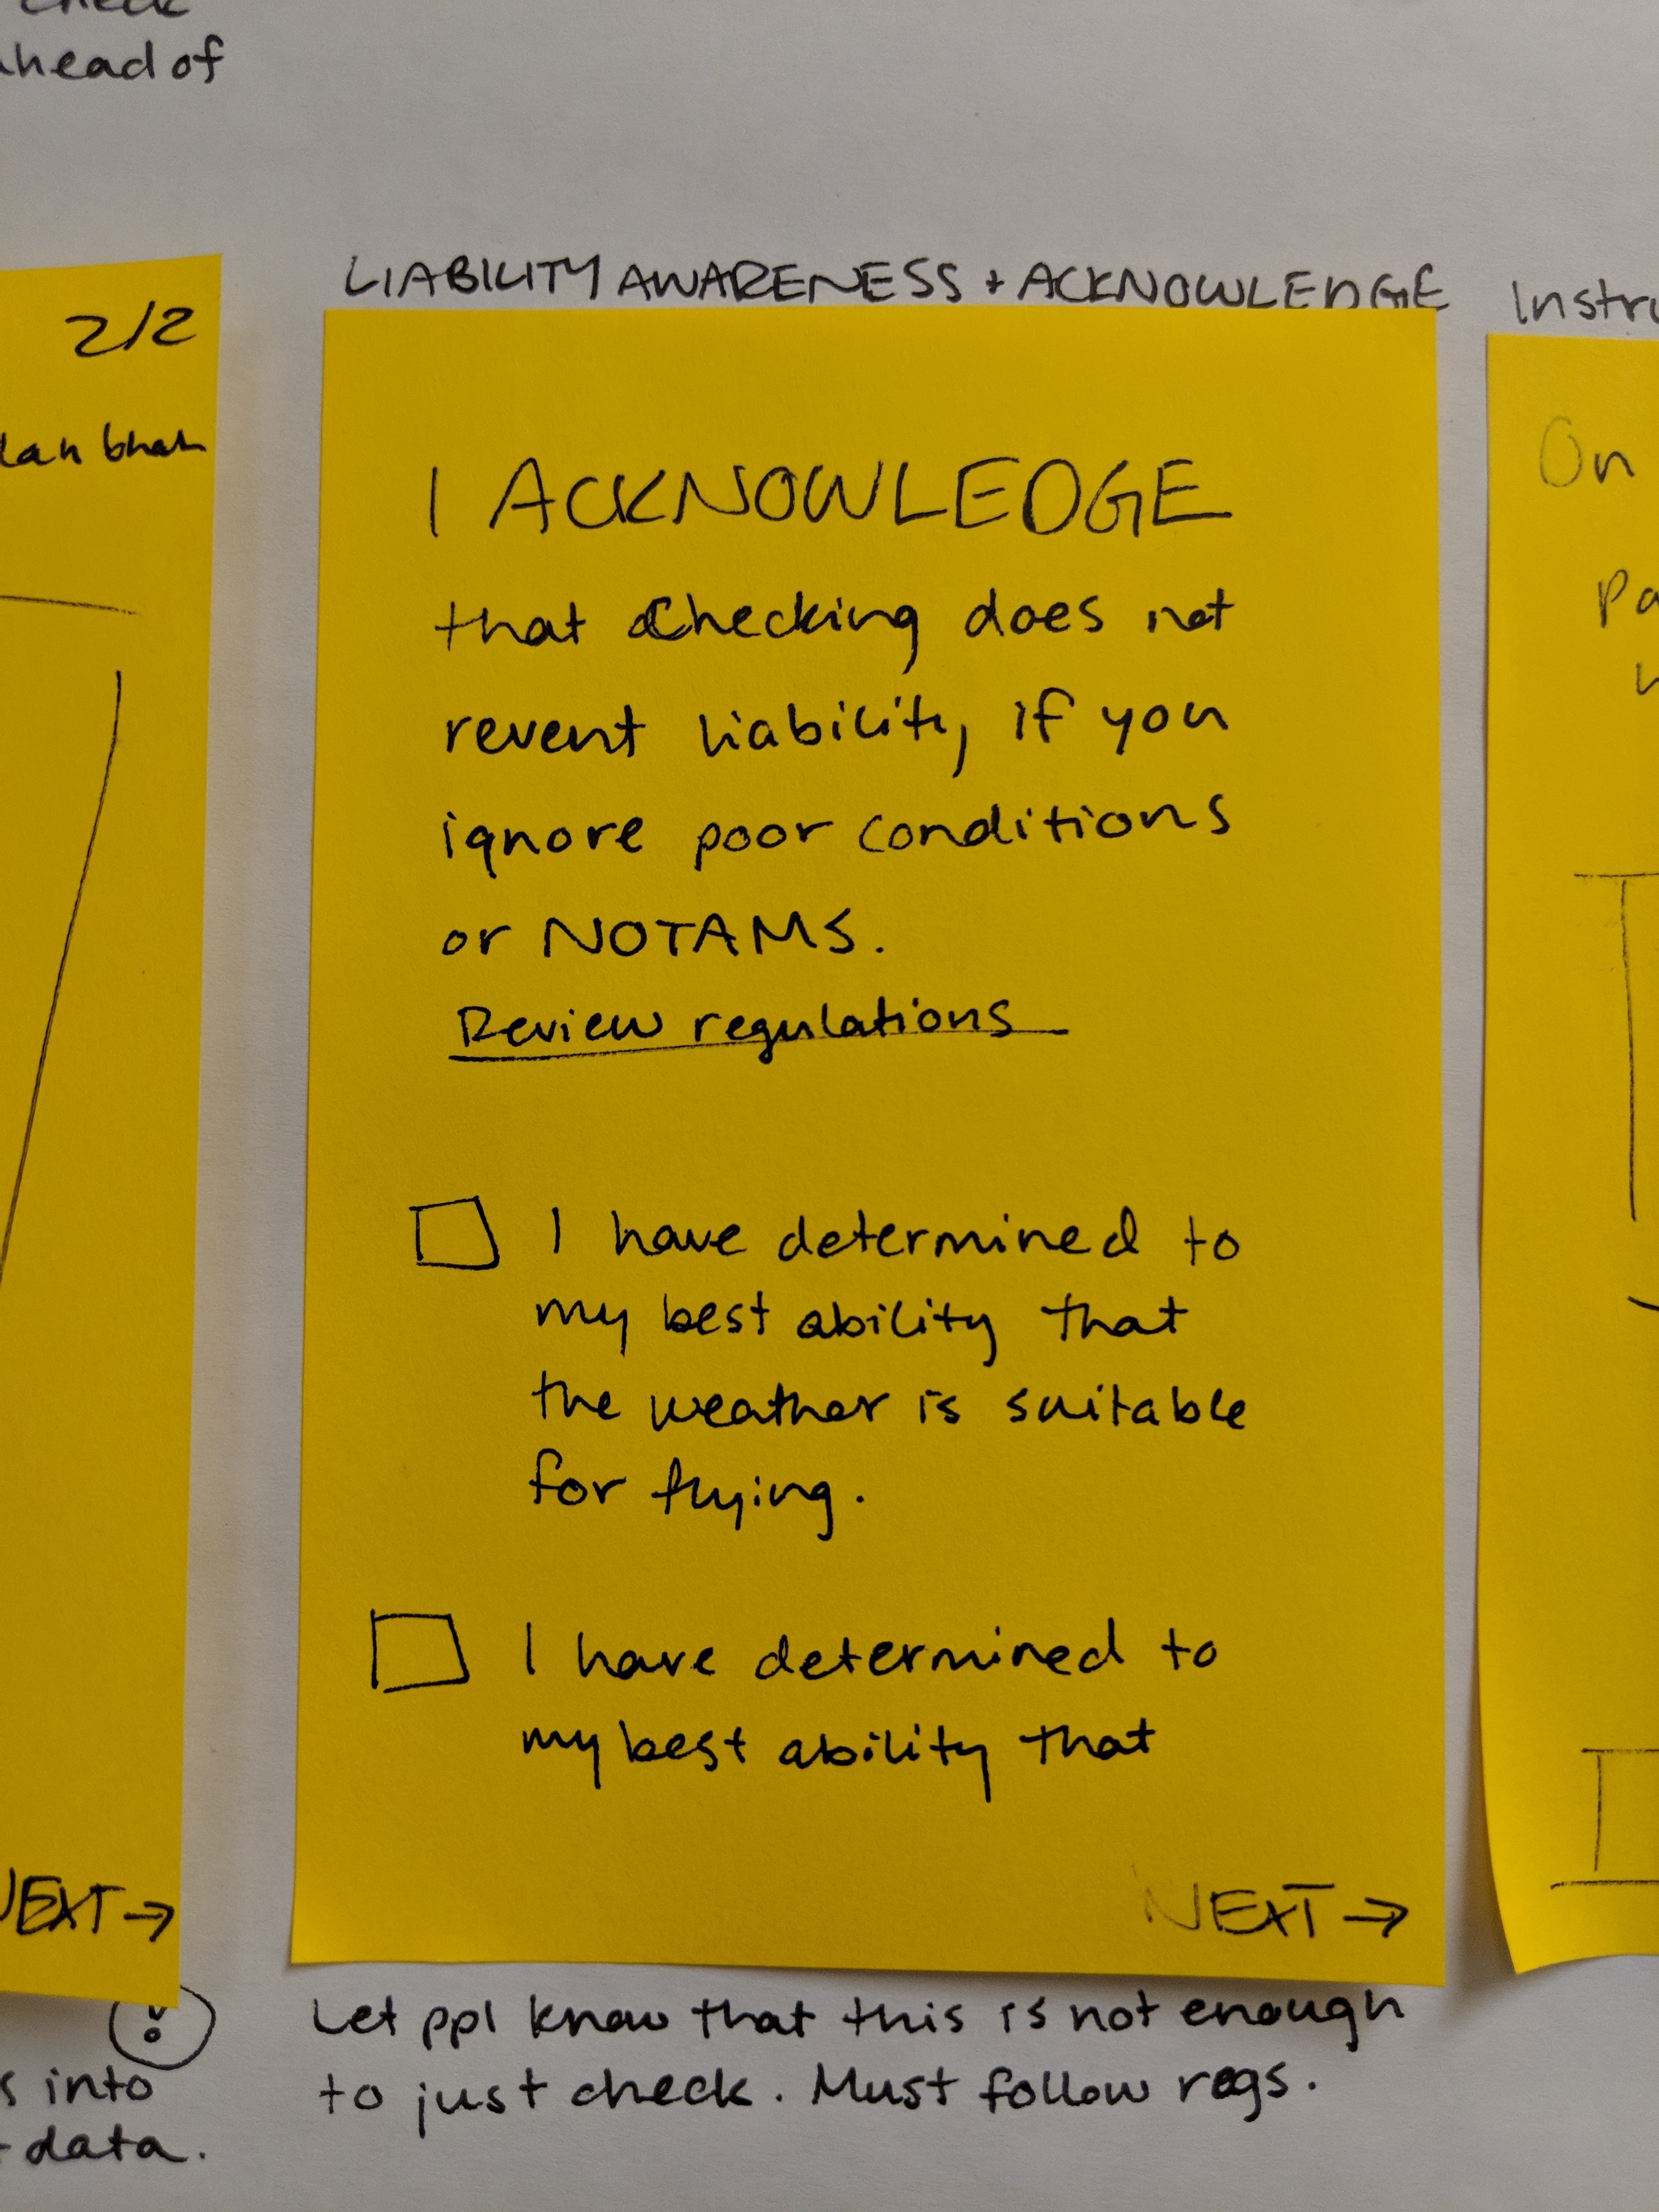 check
ahead of
2/2
NEXT →
s into
data.
LIABILITY AWARENESS + ACKNOWLEDGE
I ACKNOWLEDGE
that checking does not
revent liability, if you
ignore poor conditions
or NOTAMS.
Review regulations
I have determined to
my best ability that
the weather is suitable
for flying.
I have determined to
my best ability that
NEXT →
Let ppl know that this is not enough
to just check. Must follow regs.
Instru
On
Pa